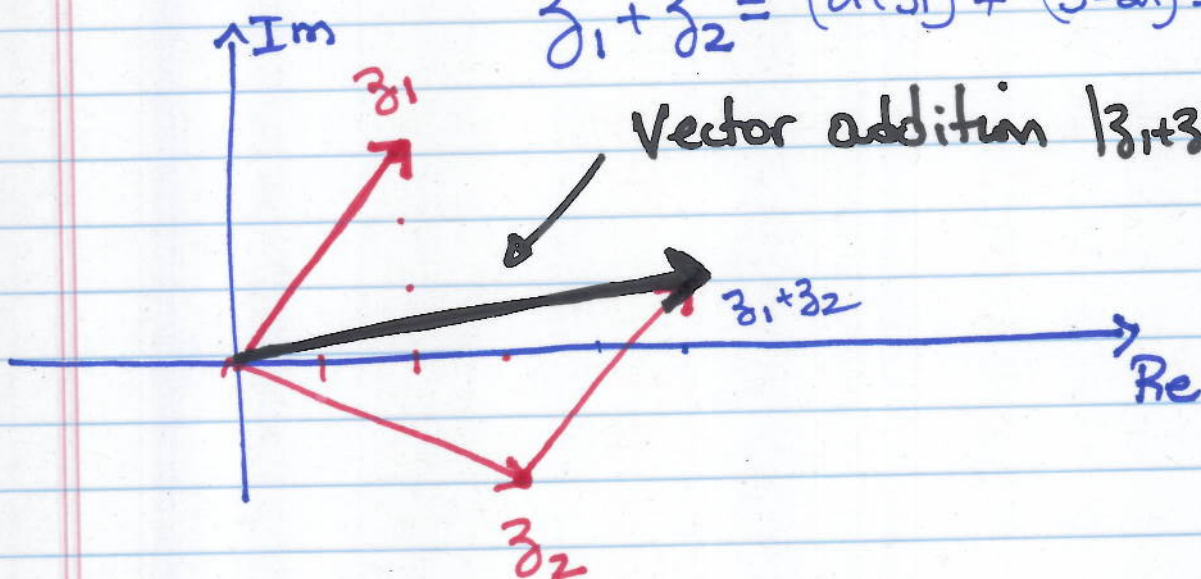 z₁ + z₂ =
Im
z₁
Vector addition |z₁+z
z₁+z₂
Re
z₂